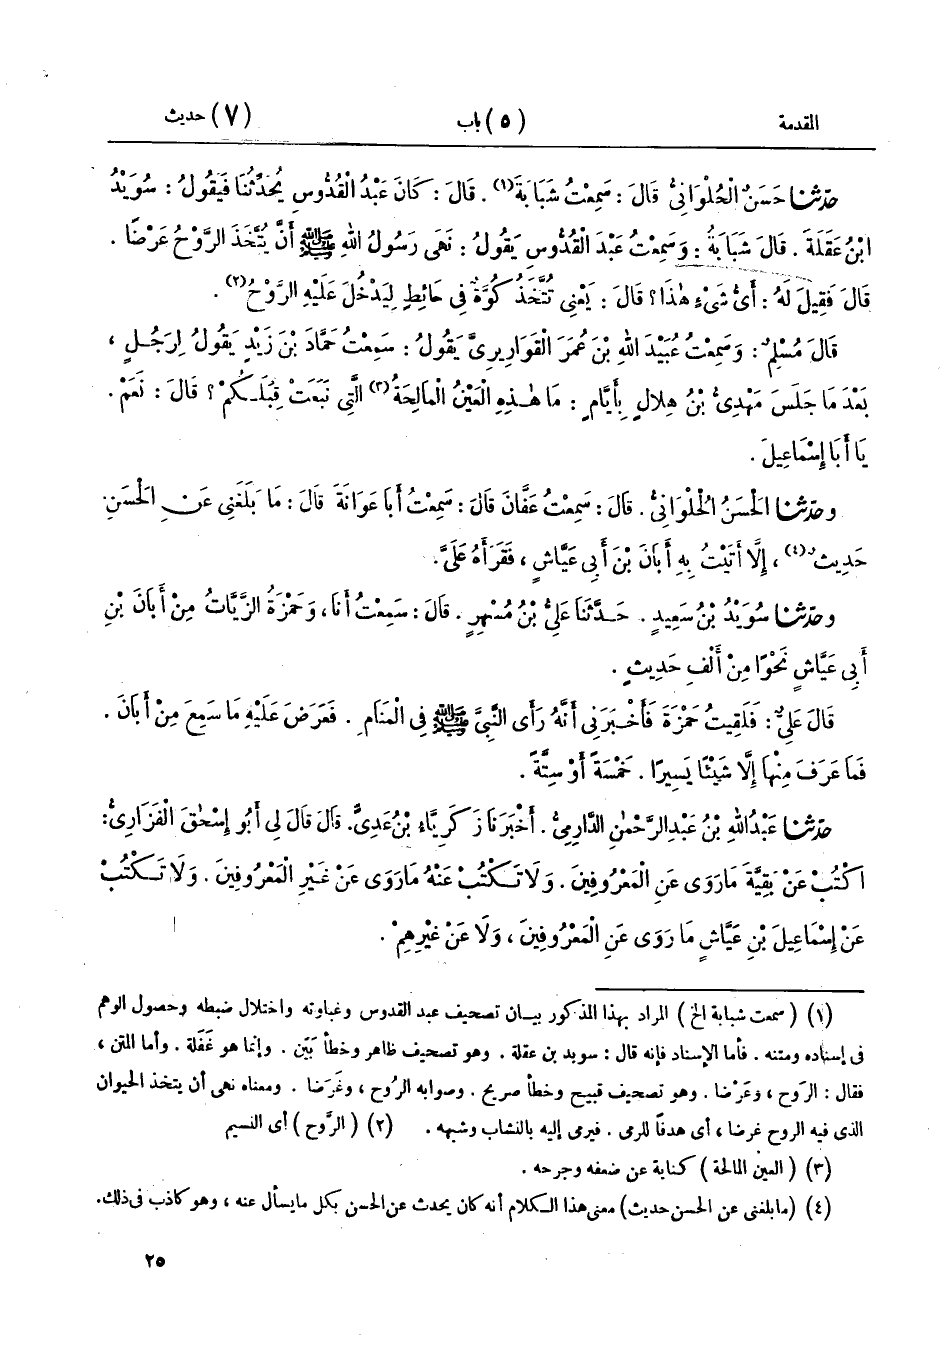 المقدمة (٥) باب (٧) حديث
حدّثنا حَسَنٌ الْحُلْوَانِيُّ قَالَ : سَمِعْتُ شَبَابَةَ(١) . قَالَ : كَانَ عَبْدُ الْقُدُّوسِ يُحَدِّثُنَا فَيَقُولُ : سُوَيْدُ
ابْنُ عَقَلَةَ . قَالَ شَبَابَةُ : وَسَمِعْتُ عَبْدَ الْقُدُّوسِ يَقُولُ : نَهَى رَسُولُ اللهِ ﷺ أَنْ يُتَّخَذَ الرَّوْحُ عَرْضًا .
قَالَ فَقِيلَ لَهُ : أَىُّ شَىْءٍ هٰذَا ؟ قَالَ : يَعْنِى تُتَّخَذُ كُوَّةٌ فِى حَائِطٍ لِيَدْخُلَ عَلَيْهِ الرَّوْحُ(٢) .
قَالَ مُسْلِمٌ : وَسَمِعْتُ عُبَيْدَ اللهِ بْنَ عُمَرَ الْقَوَارِيرِىَّ يَقُولُ : سَمِعْتُ حَمَّادَ بْنَ زَيْدٍ يَقُولُ لِرَجُلٍ ،
بَعْدَ مَا جَلَسَ مَهْدِىُّ بْنُ هِلَالٍ بِأَيَّامٍ : مَا هٰذِهِ الْعَيْنُ الْمَالِحَةُ(٣) الَّتِى نَبَعَتْ قِبَلَكُمْ ؟ قَالَ : نَعَمْ .
يَا أَبَا إِسْمَاعِيلَ .
وحدّثنا الْحَسَنُ الْحُلْوَانِىُّ . قَالَ : سَمِعْتُ عَفَّانَ قَالَ : سَمِعْتُ أَبَا عَوَانَةَ قَالَ : مَا بَلَغَنِى عَنِ الْحَسَنِ
حَدِيثٌ(٤) ، إِلَّا أَتَيْتُ بِهِ أَبَانَ بْنَ أَبِى عَيَّاشٍ ، فَقَرَأَهُ عَلَىَّ .
وحدّثنا سُوَيْدُ بْنُ سَعِيدٍ . حَدَّثَنَا عَلِىُّ بْنُ مُسْهِرٍ . قَالَ : سَمِعْتُ أَنَا ، وَحَمْزَةُ الزَّيَّاتُ مِنْ أَبَانَ بْنِ
أَبِى عَيَّاشٍ نَحْوًا مِنْ أَلْفِ حَدِيثٍ .
قَالَ عَلِىٌّ : فَلَقِيتُ حَمْزَةَ فَأَخْبَرَنِى أَنَّهُ رَأَى النَّبِىَّ ﷺ فِى الْمَنَامِ . فَعَرَضَ عَلَيْهِ مَا سَمِعَ مِنْ أَبَانَ .
فَمَا عَرَفَ مِنْهَا إِلَّا شَيْئًا يَسِيرًا . خَمْسَةً أَوْ سِتَّةً .
حدّثنا عَبْدُاللهِ بْنُ عَبْدِالرَّحْمٰنِ الدَّارِمِىُّ . أَخْبَرَنَا زَكَرِيَّاءِ بْنُ عَدِىٍّ . قَالَ قَالَ لِى أَبُو إِسْحٰقَ الْفَزَارِىُّ :
اكْتُبْ عَنْ بَقِيَّةَ مَا رَوَى عَنِ الْمَعْرُوفِينَ . وَلَا تَكْتُبْ عَنْهُ مَا رَوَى عَنْ غَيْرِ الْمَعْرُوفِينَ . وَلَا تَكْتُبْ
عَنْ إِسْمَاعِيلَ بْنِ عَيَّاشٍ مَا رَوَى عَنِ الْمَعْرُوفِينَ ، وَلَا عَنْ غَيْرِهِمْ .
(١) ( سمعت شبابة الخ ) المراد بهذا المذكور بيان تصحيف عبد القدوس وغباوته واختلال ضبطه وحصول الوهم
فى إسناده ومتنه . فأما الإسناد فإنه قال : سويد بن عقلة . وهو تصحيف ظاهر وخطأ بَيِّن . وإنما هو غَفَلَة . وأما المتن ،
فقال : الرَوح ، وعَرْضا . وهو تصحيف قبيح وخطأ صريح . وصوابه الرُوح ، وغَرَضا . ومعناه نهى أن يتخذ الحيوان
الذى فيه الروح غرضا ، أى هدفًا للرمى . فيرمى إليه بالنشاب وشبهه . (٢) ( الرَّوح ) أى النسيم
(٣) ( العين المالحة ) كناية عن ضعفه وجرحه .
(٤) (ما بلغنى عن الحسن حديث) معنى هذا الكلام أنه كان يحدث عن الحسن بكل ما يسأل عنه ، وهو كاذب فى ذلك.
٢٥